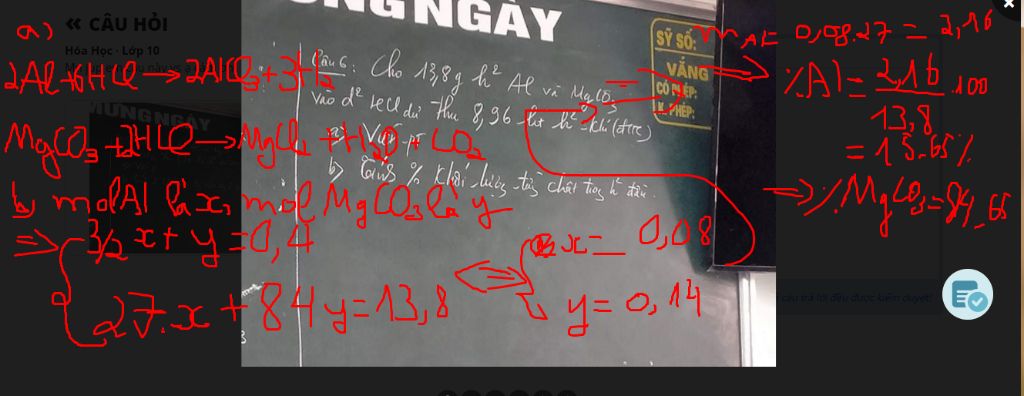 << CÂU HỎI
Hóa Học · Lớp 10
ƯNG NGÀY
SỸ SỐ:
VẮNG
CÓ PHÉP:
K. PHÉP:
Câu 6: Cho 13,8 g h² Al và MgCO3
vào d² HCl dư thu 8,96 lít h² khí (đktc)
a) Viết pt
b) Tính % khối lượng từng chất trong h² đầu.
a)
2Al+6HCl→2AlCl3+3H2
MgCO3+2HCl→MgCl2+H2O+CO2
b, mol Al là x, mol MgCO3 là y
=> 3/2 x+y=0,4
27.x+84y=13,8
<=> x=0,08
y=0,14
mAl=0,08.27=2,16
=> %Al=2,16/13,8.100
=15.65%
=> %MgCO3=84,65
câu trả lời đều được kiểm duyệt!